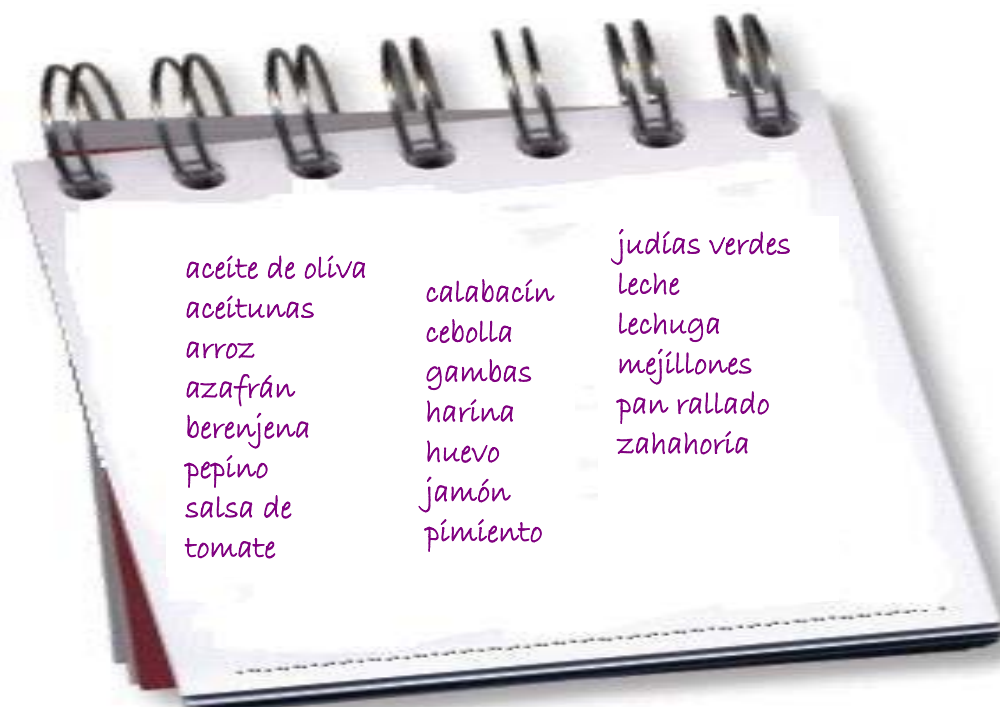 aceite de oliva
aceitunas
arroz
azafrán
berenjena
pepino
salsa de
tomate
calabacín
cebolla
gambas
harina
huevo
jamón
pimiento
judías verdes
leche
lechuga
mejillones
pan rallado
zahahoria